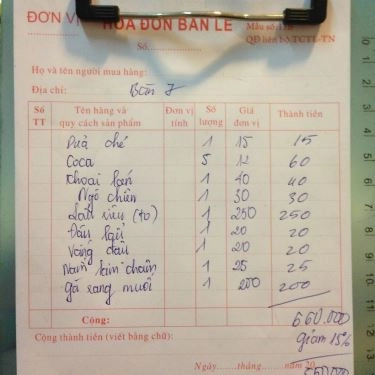 ĐƠN VỊ
HÓA ĐƠN BÁN LẺ
QĐ liên bộ TCTL-TN
Số
Họ và tên người mua hàng:
Địa chỉ: Bàn 7
Số TT Tên hàng và quy cách sản phẩm Đơn vị tính Số lượng Giá đơn vị Thành tiền
1 15 15
Coca 5 12 60
Khoai lán 1 40 40
Ngô chiên 1 30 30
Lẩu riêu (to) 1 250 250
Đậu 1 20 20
Váng đậu 1 20 20
Nấm kim châm 1 25 25
Gà rang muối 1 200 200
Cộng: 660.000
giảm 15%
Cộng thành tiền (viết bằng chữ):
Ngày......tháng......năm 20